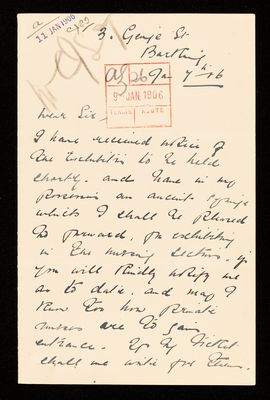 a
11 JAN 1906
3. George St
Jan 7th 06
9 - JAN 1906
Dear Sir -
I have received notice of
the Exhibition to be held
shortly. and have in my
possession an ancient syringe
which I shall be pleased
to forward, for exhibiting
in the nursing section, if
you will kindly notify me
as to date and may I
know too how private
nurses are to gain
entrance. If by Ticket
shall we write for them.